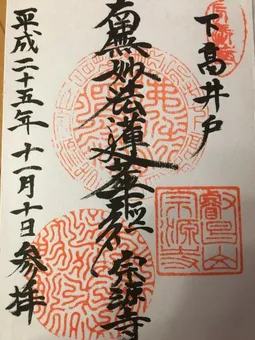 下高井戸
南無妙法蓮華経 宗源寺
平成二十五年十一月十日参拝
叡昌山
宗源寺